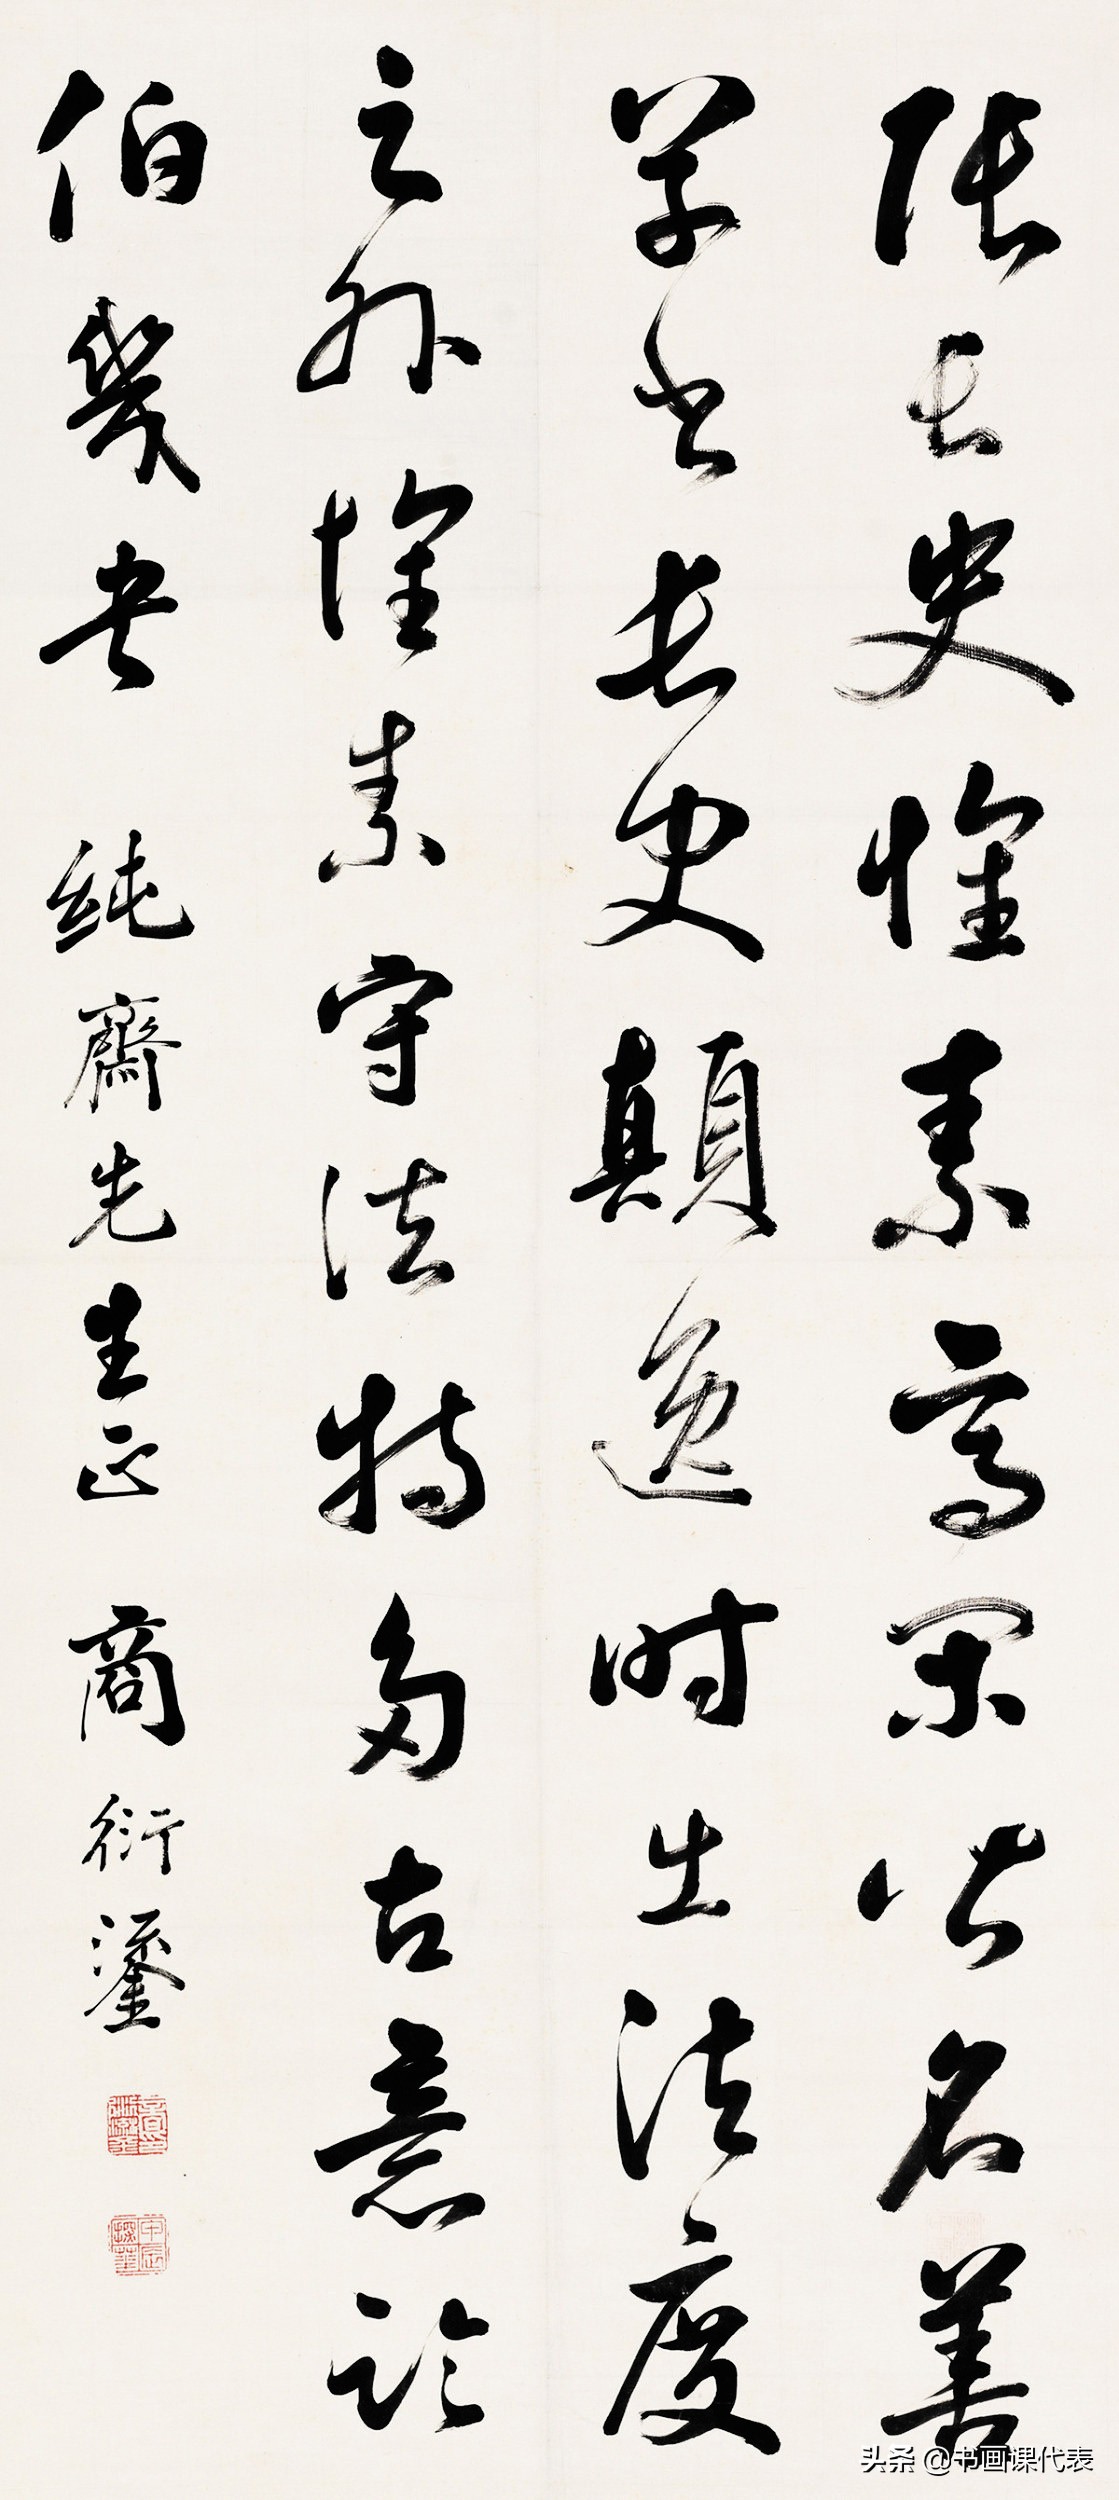 張長史懷素高閑皆名善
草書長史顛逸時出法度
之外懷素守法特多古意臨
伯幾書 純齋先生正 商衍鎏
甲辰探華
头条 @书画课代表